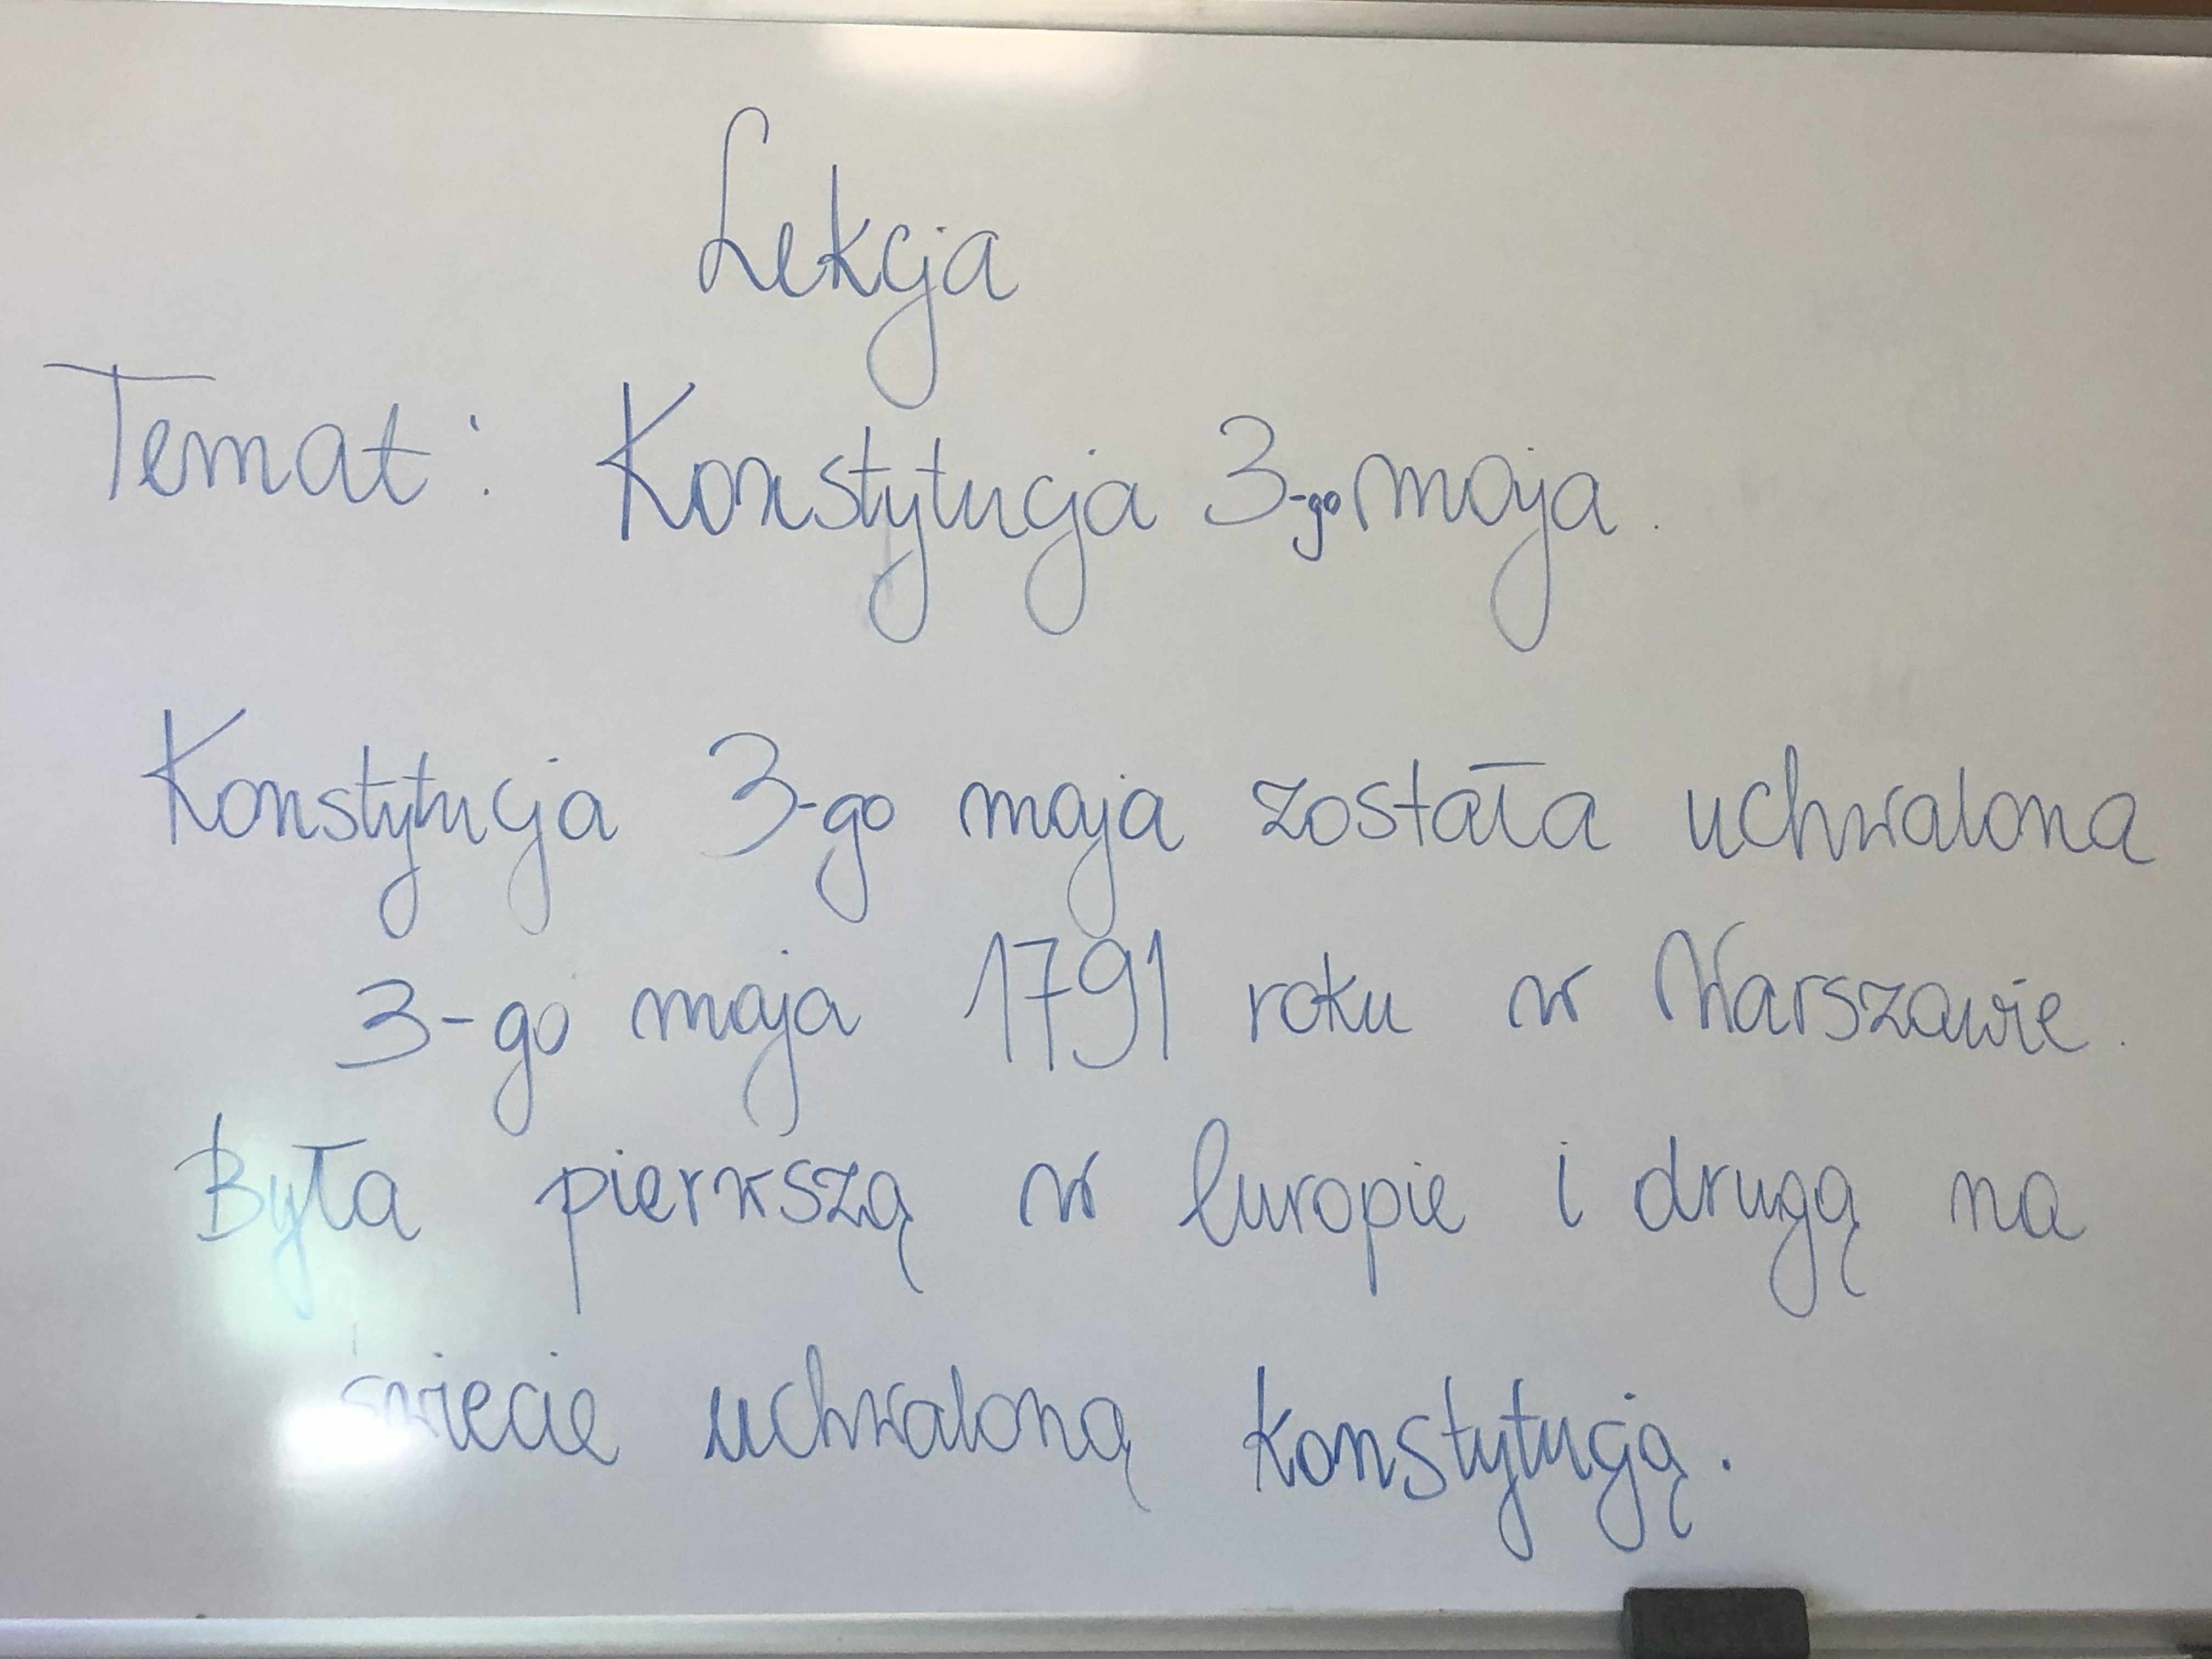 Lekcja
Temat: Konstytucja 3-go maja.
Konstytucja 3-go maja została uchwalona
3-go maja 1791 roku w Warszawie.
Była pierwszą w Europie i drugą na
świecie uchwaloną konstytucją.